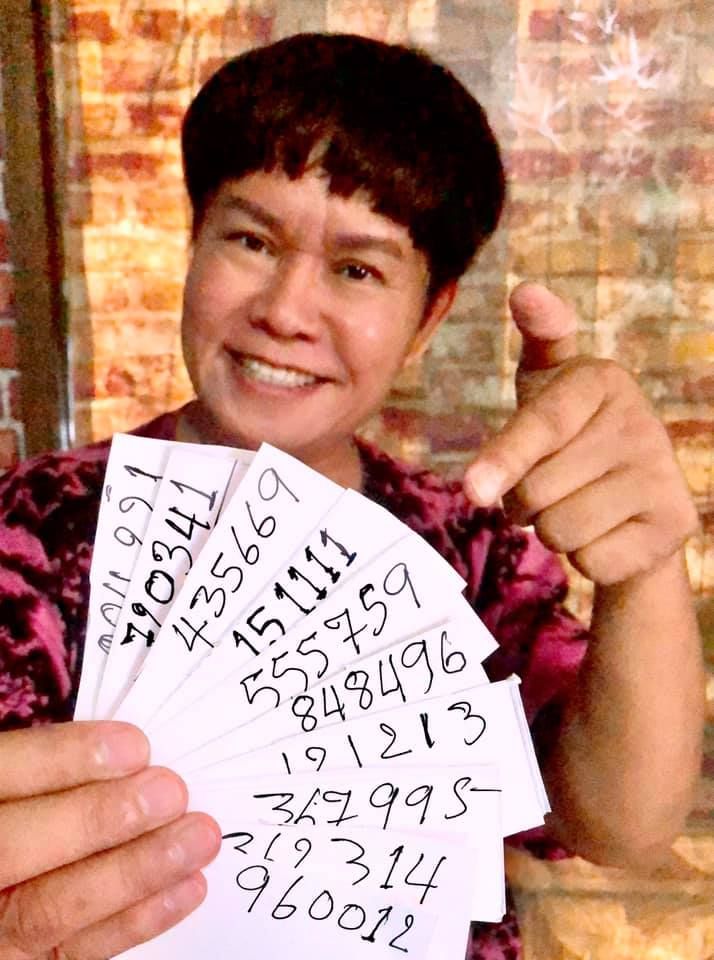 790341
435669
151111
555759
848496
191213
367995
319314
960012